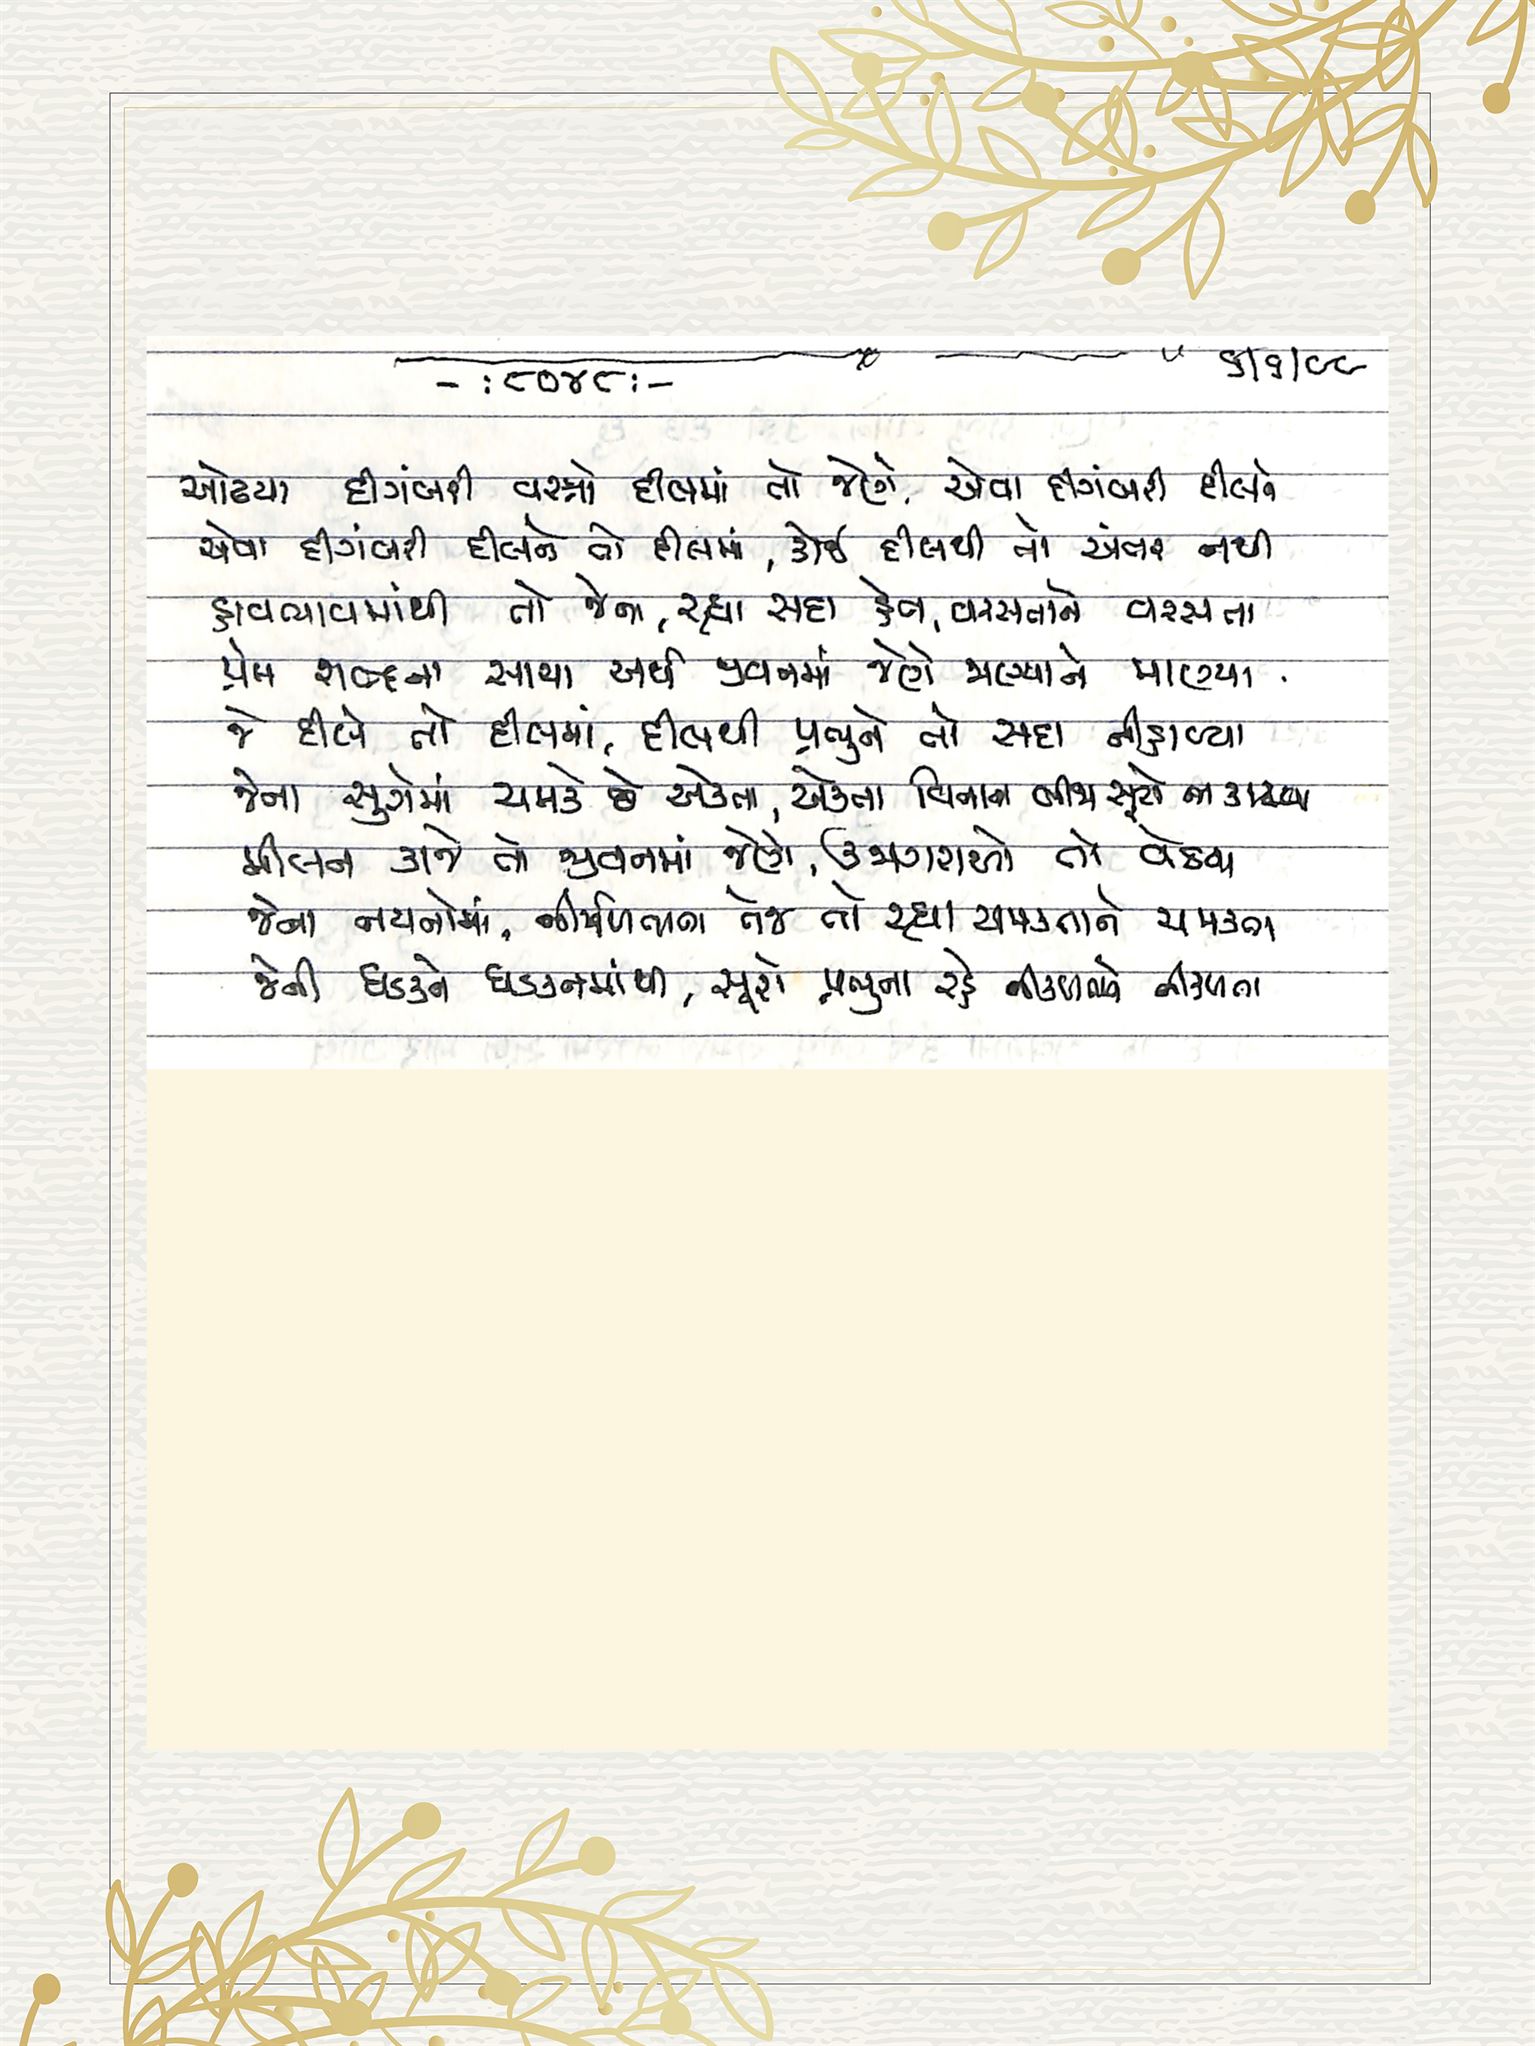 ૬/૧/૯૯
- : ૮૦૪૮ : -
ઓઢયા દીગંબરી વસ્ત્રો દીલમાં તો જેણે, એવા દીગંબરી દીલને
એવા દીગંબરી દીલને તો દીલમાં, કોઈ દીલથી તો અંતર નથી
હાવભાવમાંથી તો જેના, રહ્યા સદા હેત, વરસતાને વરસતા
પ્રેમ શબ્દના સાચા અર્થ જીવનમાં જેણે જાણ્યાને માણ્યા.
જે દીલે તો દીલમાં, દીલથી પ્રભુને તો સદા નીહાળ્યા
જેના સુરોમાં ચમકે છે એકતા, એકતા વિનાના બીજા સૂરો ના કાઢયા
મીલન કાજે તો જીવનમાં જેણે, ઉજાગરાઓ તો વેઠયા
જેના નયનોમાં, નીર્મળતાના તેજ તો રહ્યા ચમકતાને ચમકતા
જેની ધડકને ધડકનમાંથી, સૂરો પ્રભુના રહે નીકળતાને નીકળતા